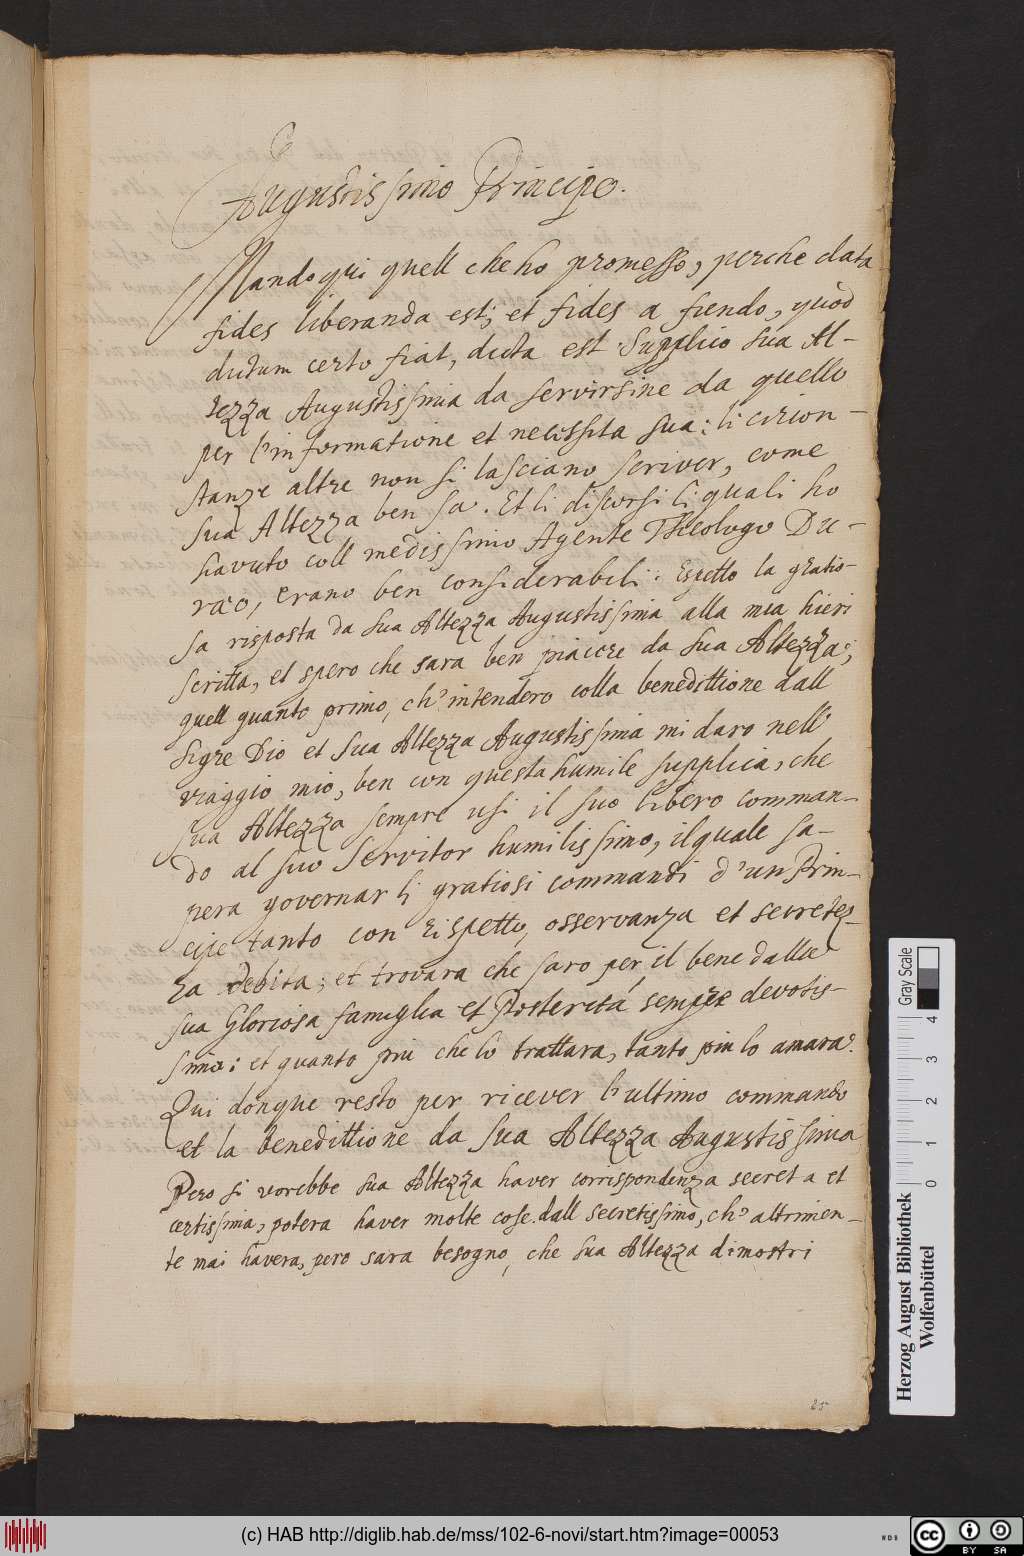 Augustissimo Principe.
Mando qui quell che ho promesso, perche data
fides liberanda est; et fides a fiendo, quod
dictum certo fiat, dicta est. Supplico sua Al-
tezza Augustissima da servirsine da quello
per l'informatione et necissita sua: li circon-
stanze altre non si lasciano scriver, come
sua Altezza ben sa. Et li discorsi li quali ho
havuto coll medissimo Agente Theologo Du-
raeo, erano ben considerabili: Espetto la gratio-
sa risposta da sua Altezza Augustissima alla mia hieri
scritta, et spero che sara ben piacere da sua Altezza;
quell quanto primo, ch' intendero colla benedittione dall
Sigre Dio et sua Altezza Augustissima mi daro nell'
viaggio mio, ben con questa humile supplica, che
sua Altezza sempre usi il suo libero comman-
do al suo Servitor humilissimo, il quale sa-
pera governar li gratiosi commandi d'un Prin-
cipe tanto con rispetto, osservanza et secretez-
za debita; et trovara che saro per il bene dalla
sua Gloriosa famiglia et Posterità sempre devotis-
simo: et quanto piu che lo trattara, tanto piu lo amara.
Qui donque resto per ricever l'ultimo commando
et la benedittione da sua Altezza Augustissima
Pero si vorebbe sua Altezza haver corrispondenza secreta et
certissima, potera haver molte cose dall secretissimo, ch' altrimen-
te mai havera, pero sara besogno, che sua Altezza dimostri
25
Herzog August Bibliothek
Wolfenbüttel
0 1 2 3 4
Gray Scale
(c) HAB http://diglib.hab.de/mss/102-6-novi/start.htm?image=00053
WDB
cc BY SA